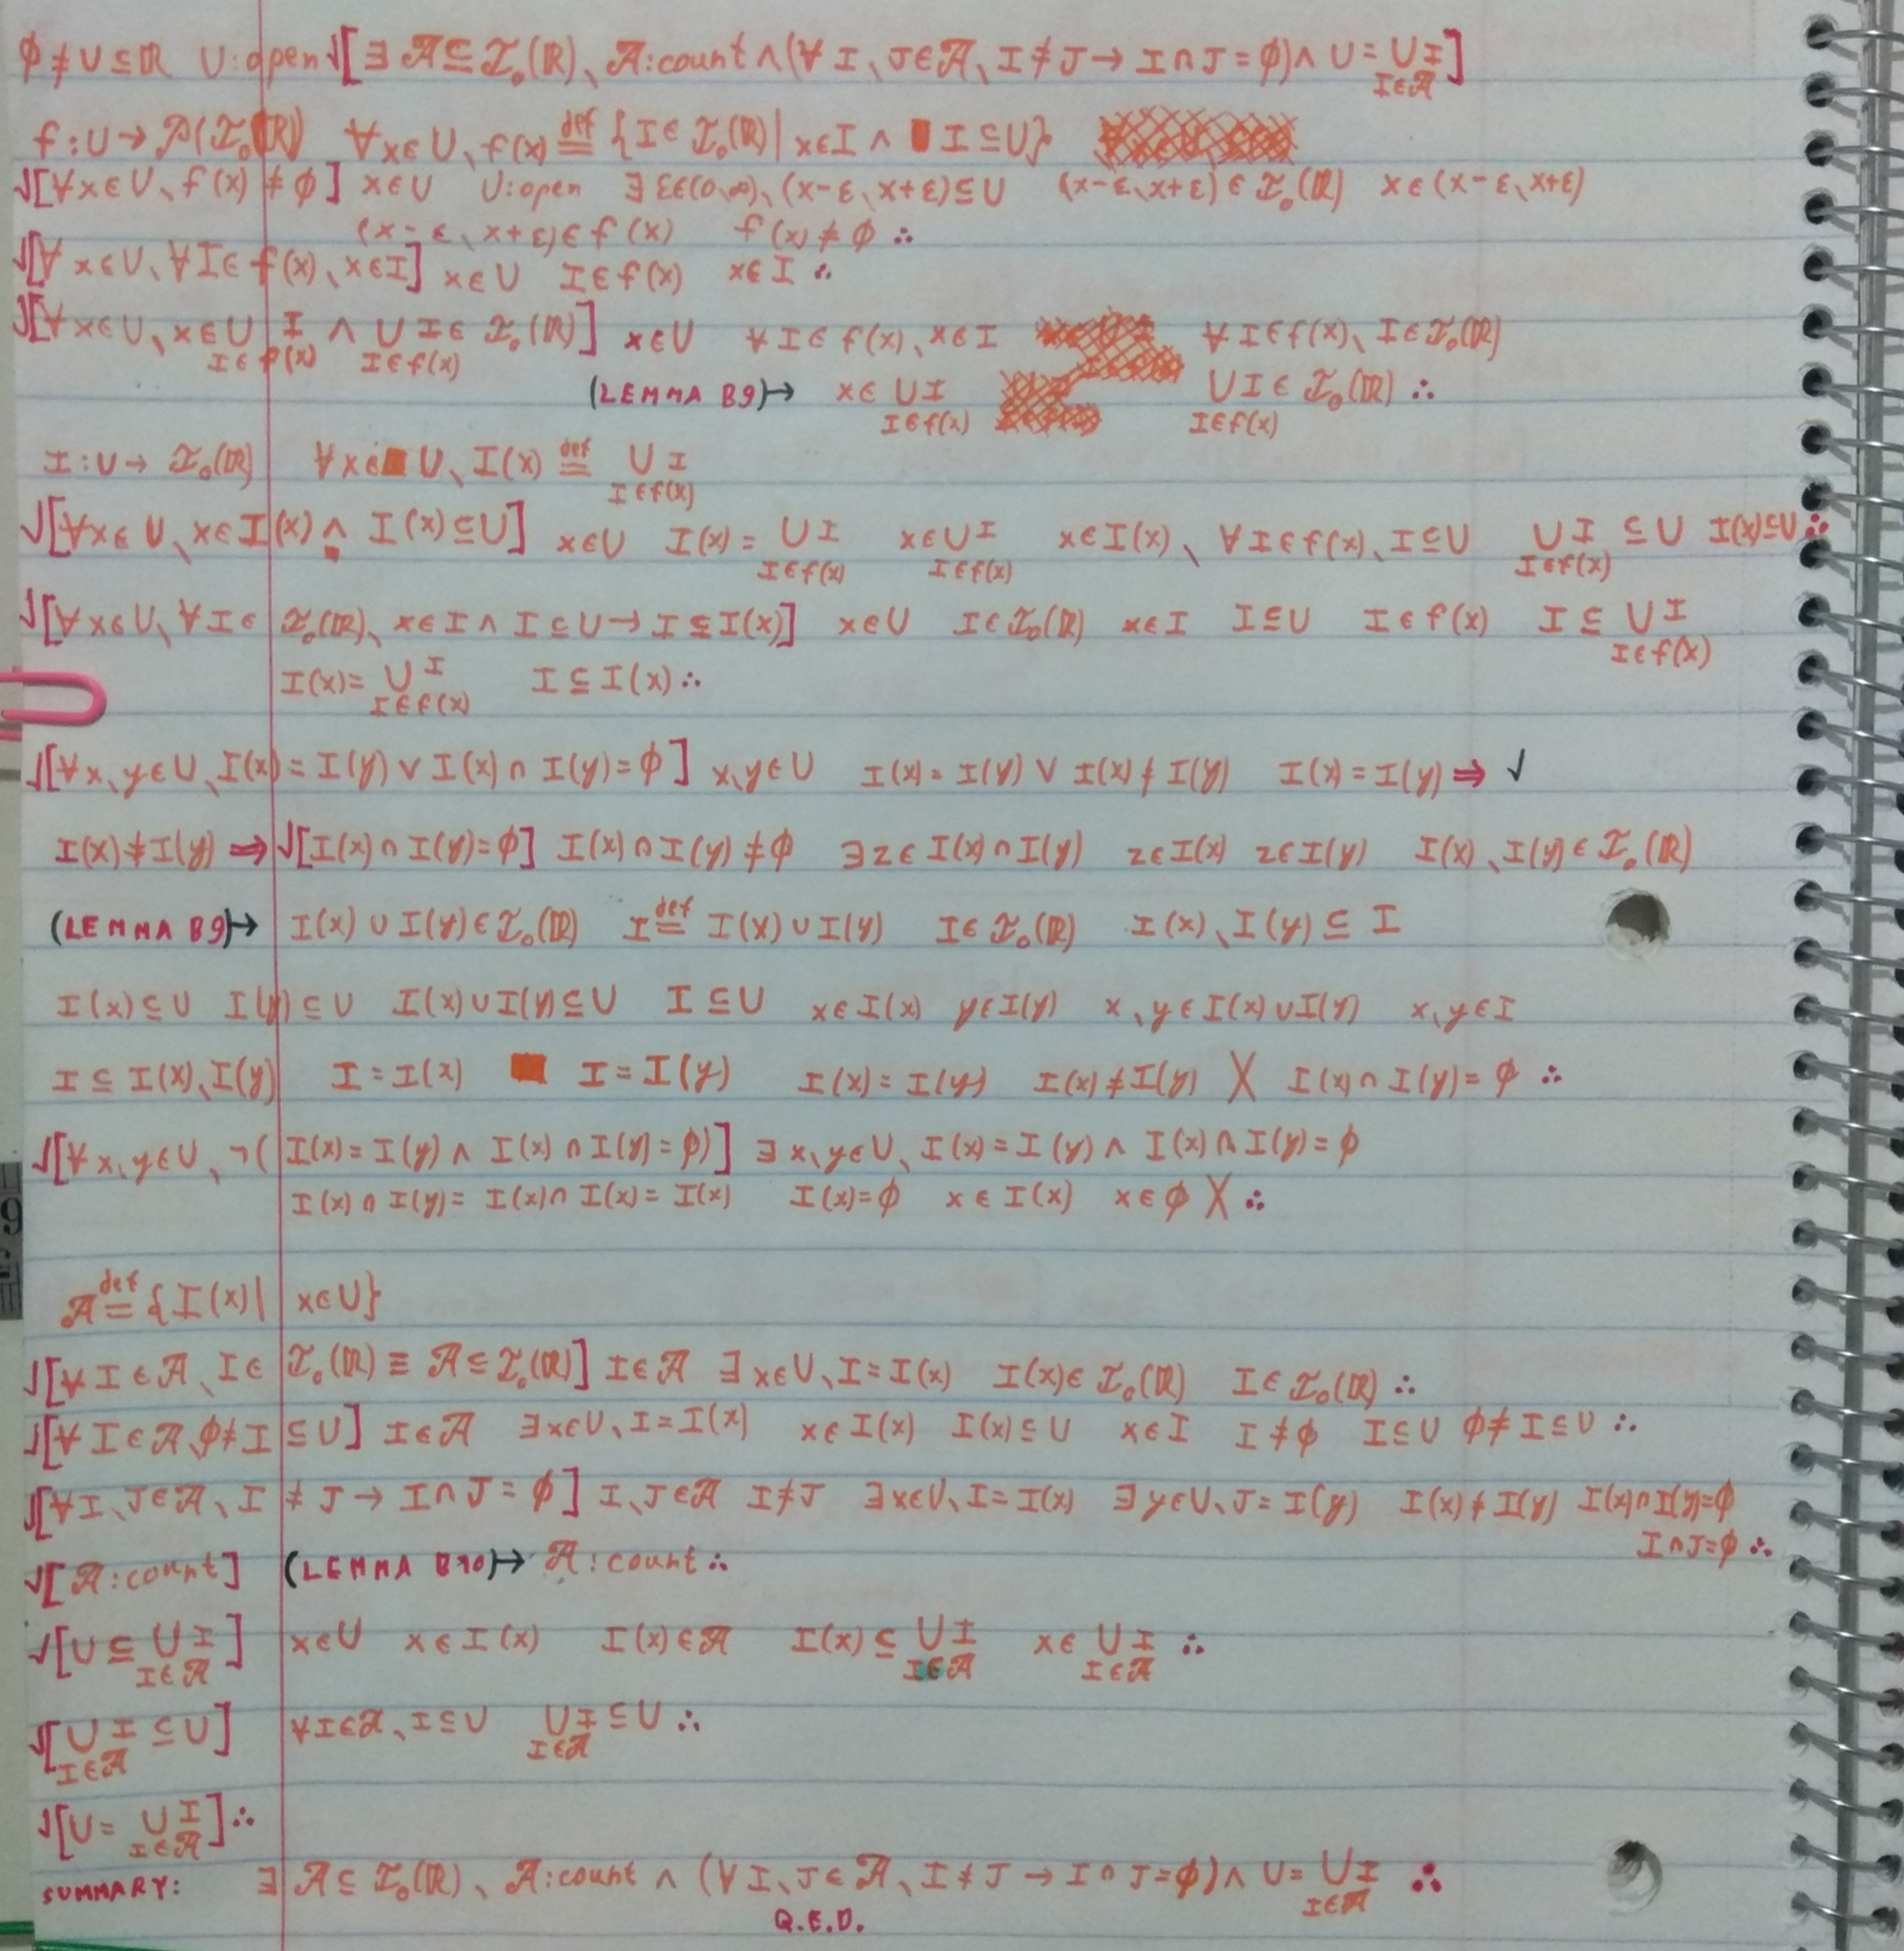 ∅≠U⊆ℝ U:open √[∃ 𝒜⊆ℐₒ(ℝ)、𝒜:count∧(∀ I、J∈𝒜、I≠J→I∩J=∅)∧U=⋃I I∈𝒜]
f:U→𝒫(ℐₒ(ℝ)) ∀x∈U、f(x) def= {I∈ℐₒ(ℝ)|x∈I ∧ I⊆U}
√[∀x∈U、f(x)≠∅] x∈U U:open ∃ε∈(0、∞)、(x-ε、x+ε)⊆U (x-ε、x+ε)∈ℐₒ(ℝ) x∈(x-ε、x+ε)
(x-ε、x+ε)∈f(x) f(x)≠∅ ∴
√[∀x∈U、∀I∈f(x)、x∈I] x∈U I∈f(x) x∈I ∴
√[∀x∈U、x∈⋃I I∈f(x) ∧ ⋃I I∈f(x) ∈ℐₒ(ℝ)] x∈U ∀I∈f(x)、x∈I ∀I∈f(x)、I∈ℐₒ(ℝ)
(LEMMA B9)↦ x∈⋃I I∈f(x) ⋃I I∈f(x) ∈ℐₒ(ℝ) ∴
I:U→ℐₒ(ℝ) ∀x∈U、I(x) def= ⋃I I∈f(x)
√[∀x∈U、x∈I(x) ∧ I(x)⊆U] x∈U I(x)=⋃I I∈f(x) x∈⋃I I∈f(x) x∈I(x)、∀I∈f(x)、I⊆U ⋃I I∈f(x) ⊆U I(x)⊆U ∴
√[∀x∈U、∀I∈ℐₒ(ℝ)、x∈I∧I⊆U→I⊆I(x)] x∈U I∈ℐₒ(ℝ) x∈I I⊆U I∈f(x) I⊆⋃I I∈f(x)
I(x)=⋃I I∈f(x) I⊆I(x) ∴
√[∀x、y∈U、I(x)=I(y)∨I(x)∩I(y)=∅] x、y∈U I(x)=I(y)∨I(x)≠I(y) I(x)=I(y)⇒ √
I(x)≠I(y)⇒√[I(x)∩I(y)=∅] I(x)∩I(y)≠∅ ∃z∈I(x)∩I(y) z∈I(x) z∈I(y) I(x)、I(y)∈ℐₒ(ℝ)
(LEMMA B9)↦ I(x)∪I(y)∈ℐₒ(ℝ) I def= I(x)∪I(y) I∈ℐₒ(ℝ) I(x)、I(y)⊆I
I(x)⊆U I(y)⊆U I(x)∪I(y)⊆U I⊆U x∈I(x) y∈I(y) x、y∈I(x)∪I(y) x、y∈I
I⊆I(x)、I(y) I=I(x) I=I(y) I(x)=I(y) I(x)≠I(y) X I(x)∩I(y)=∅ ∴
√[∀x、y∈U、¬(I(x)=I(y)∧I(x)∩I(y)=∅)] ∃x、y∈U、I(x)=I(y)∧I(x)∩I(y)=∅
I(x)∩I(y)=I(x)∩I(x)=I(x) I(x)=∅ x∈I(x) x∈∅ X ∴
𝒜 def= {I(x)|x∈U}
√[∀I∈𝒜、I∈ℐₒ(ℝ)≡𝒜⊆ℐₒ(ℝ)] I∈𝒜 ∃x∈U、I=I(x) I(x)∈ℐₒ(ℝ) I∈ℐₒ(ℝ) ∴
√[∀I∈𝒜、∅≠I⊆U] I∈𝒜 ∃x∈U、I=I(x) x∈I(x) I(x)⊆U x∈I I≠∅ I⊆U ∅≠I⊆U ∴
√[∀I、J∈𝒜、I≠J→I∩J=∅] I、J∈𝒜 I≠J ∃x∈U、I=I(x) ∃y∈U、J=I(y) I(x)≠I(y) I(x)∩I(y)=∅
I∩J=∅ ∴
√[𝒜:count] (LEMMA B10)↦ 𝒜:count ∴
√[U⊆⋃I I∈𝒜] x∈U x∈I(x) I(x)∈𝒜 I(x)⊆⋃I I∈𝒜 x∈⋃I I∈𝒜 ∴
√[⋃I I∈𝒜 ⊆U] ∀I∈𝒜、I⊆U ⋃I I∈𝒜 ⊆U ∴
√[U=⋃I I∈𝒜] ∴
SUMMARY: ∃ 𝒜⊆ℐₒ(ℝ)、𝒜:count ∧ (∀ I、J∈𝒜、I≠J→I∩J=∅)∧U=⋃I I∈𝒜 ∴
Q.E.D.